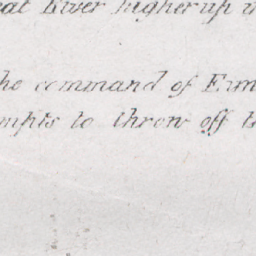 eat River higher up i
he command of Eum
mpts to throw off t